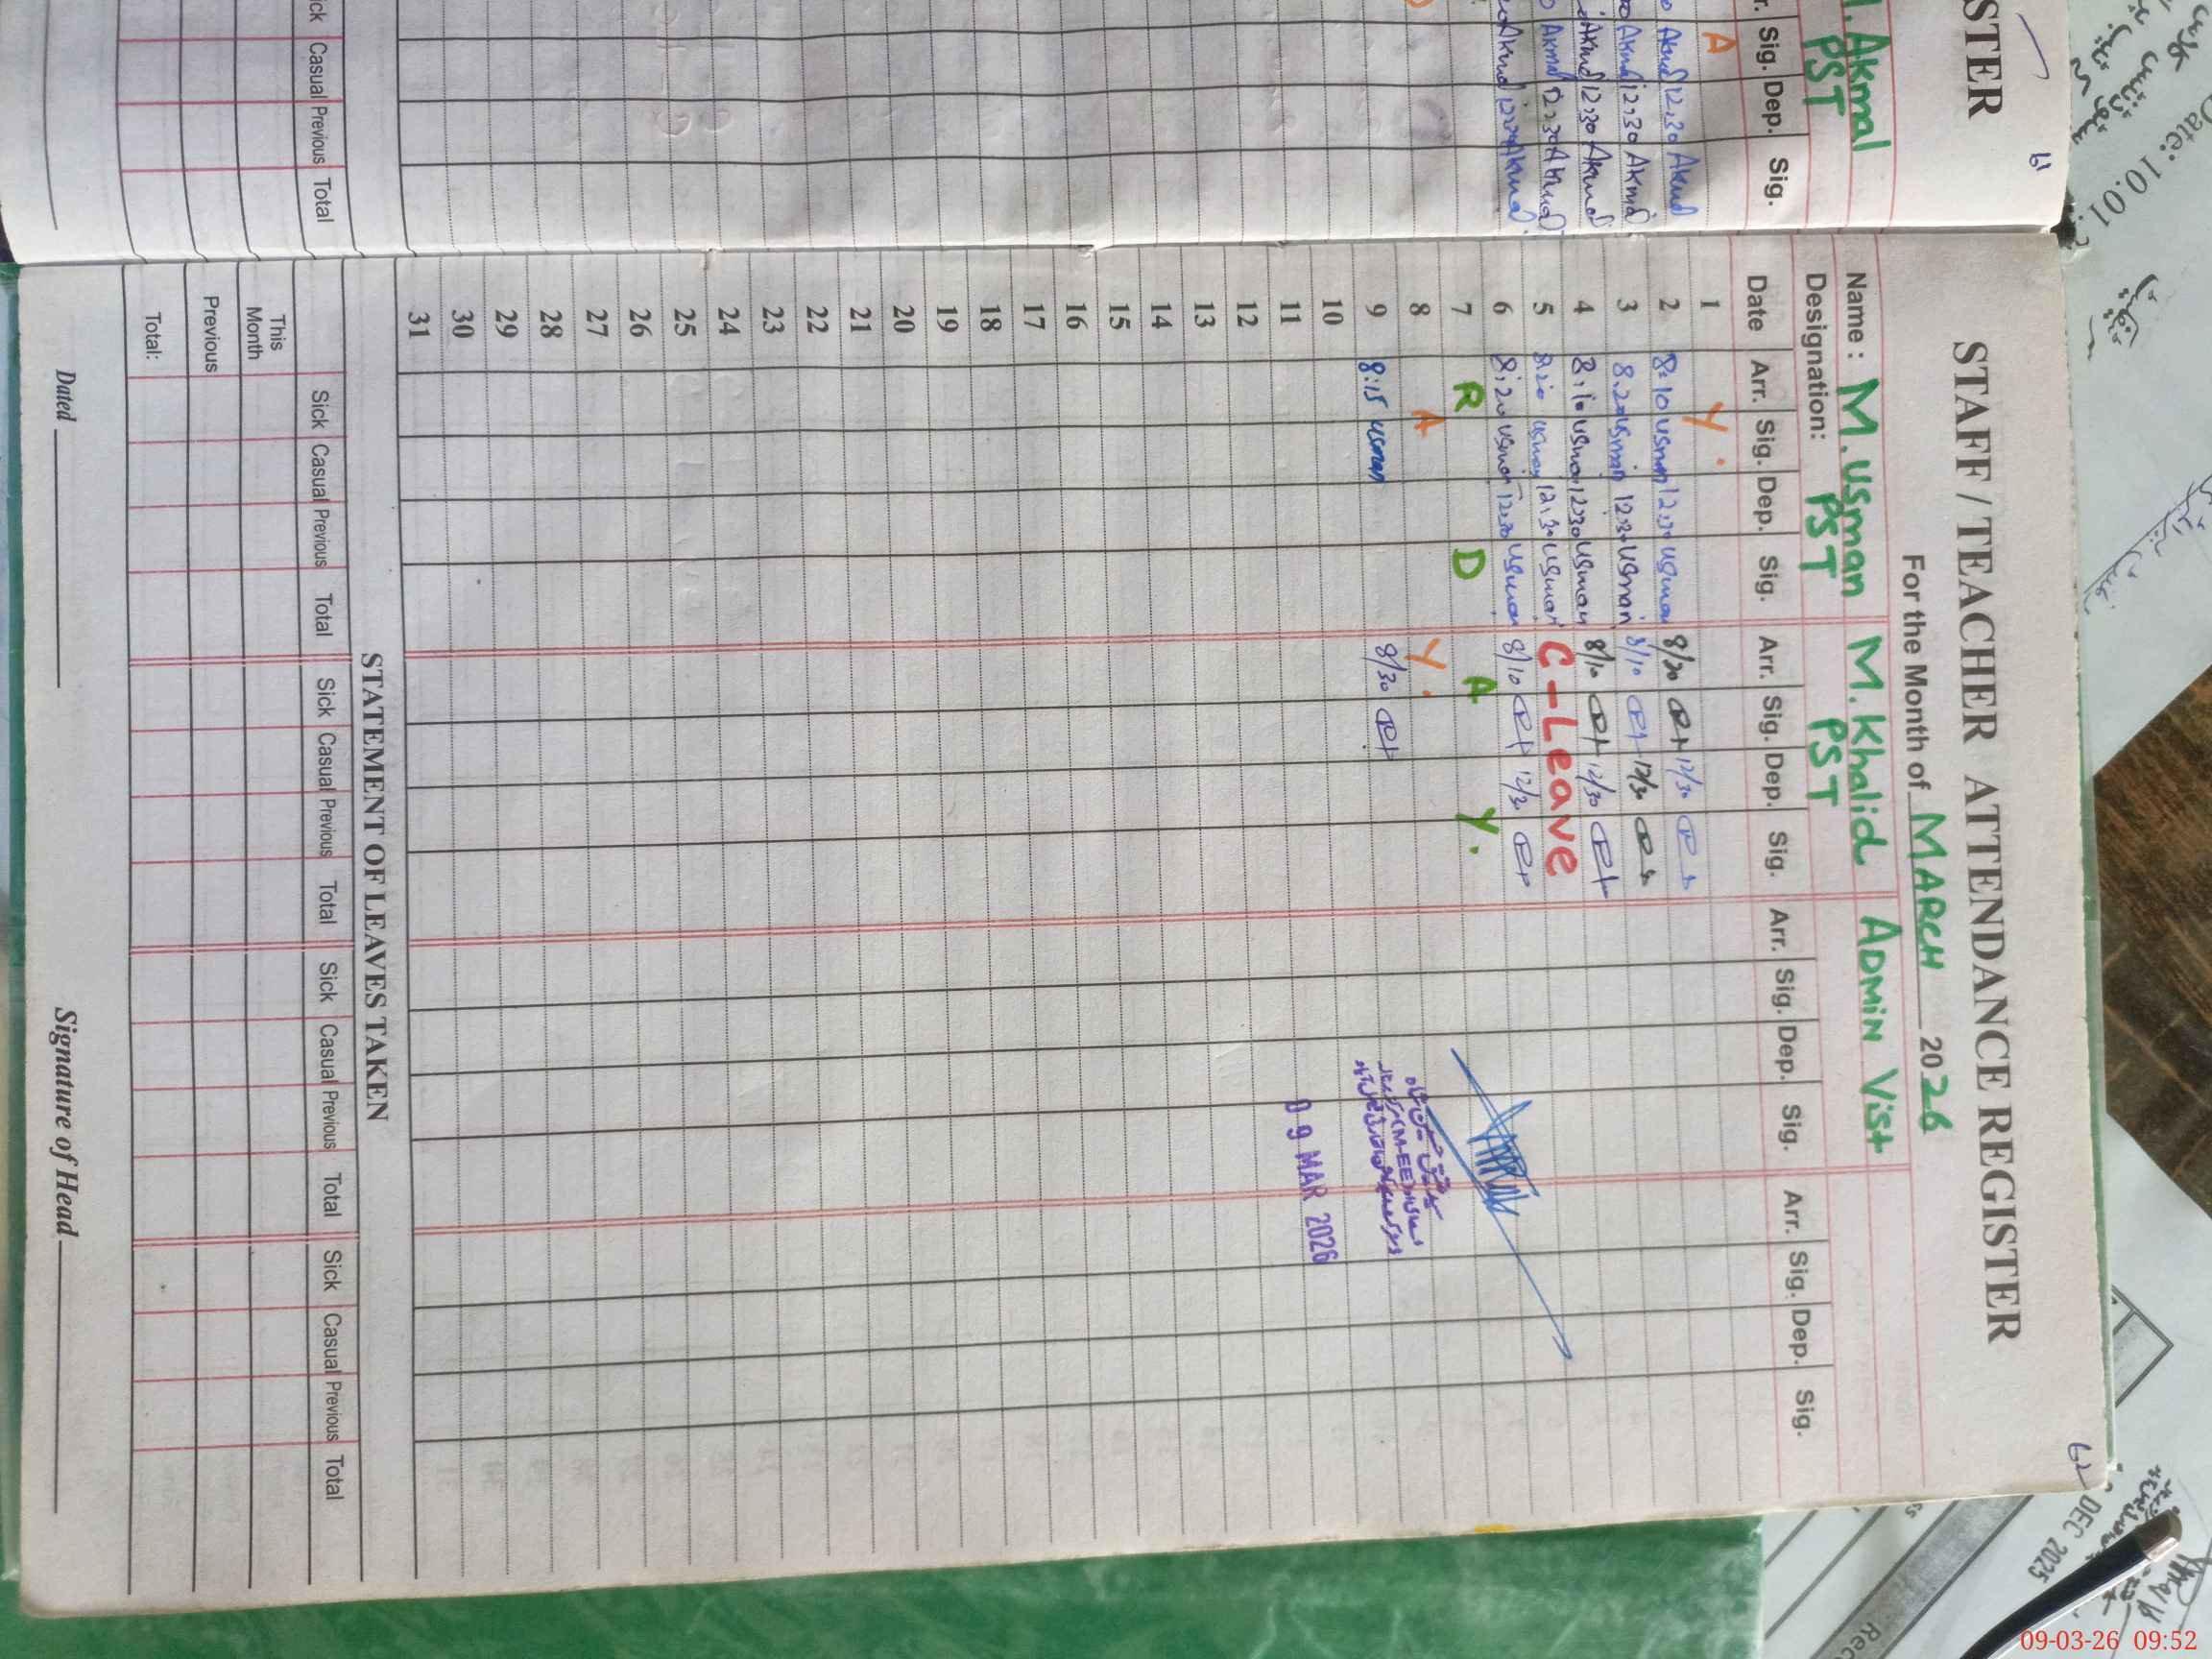 STAFF / TEACHER ATTENDANCE REGISTER
For the Month of MARCH 2026
Name : M. Usman M. Khalid Admin Vist
Designation: PST PST
Date Arr. Sig. Dep. Sig. Arr. Sig. Dep. Sig. Arr. Sig. Dep. Sig. Arr. Sig. Dep. Sig.
1 Y.
2 8:10 usman 12:30 usman 8/20 12/30
3 8.20 usman 12:30 usman 8/10 12/30
4 8:10 usman 12:30 usman 8/10 12/30
5 8:20 usman 12:30 usman C-Leave
6 8:20 usman 12:30 usman 8/10 12/30
7 R D A Y.
8 A Y.
9 8:15 usman 8/30
10
11
09 MAR 2026
12
13
14
15
16
17
18
19
20
21
22
23
24
25
26
27
28
29
30
31
STATEMENT OF LEAVES TAKEN
Sick Casual Previous Total Sick Casual Previous Total Sick Casual Previous Total Sick Casual Previous Total
This Month
Previous
Total:
Dated
Signature of Head
62
STER
61
M. Akmal
PST
Sig. Dep. Sig.
A
Akmal 12:30 Akmal
Akmal 12:30 Akmal
Akmal 12:30 Akmal
Akmal 12:30 Akmal
Akmal 12:30 Akmal
Casual Previous Total
Date: 10.01
DEC 2025
09-03-26 09:52